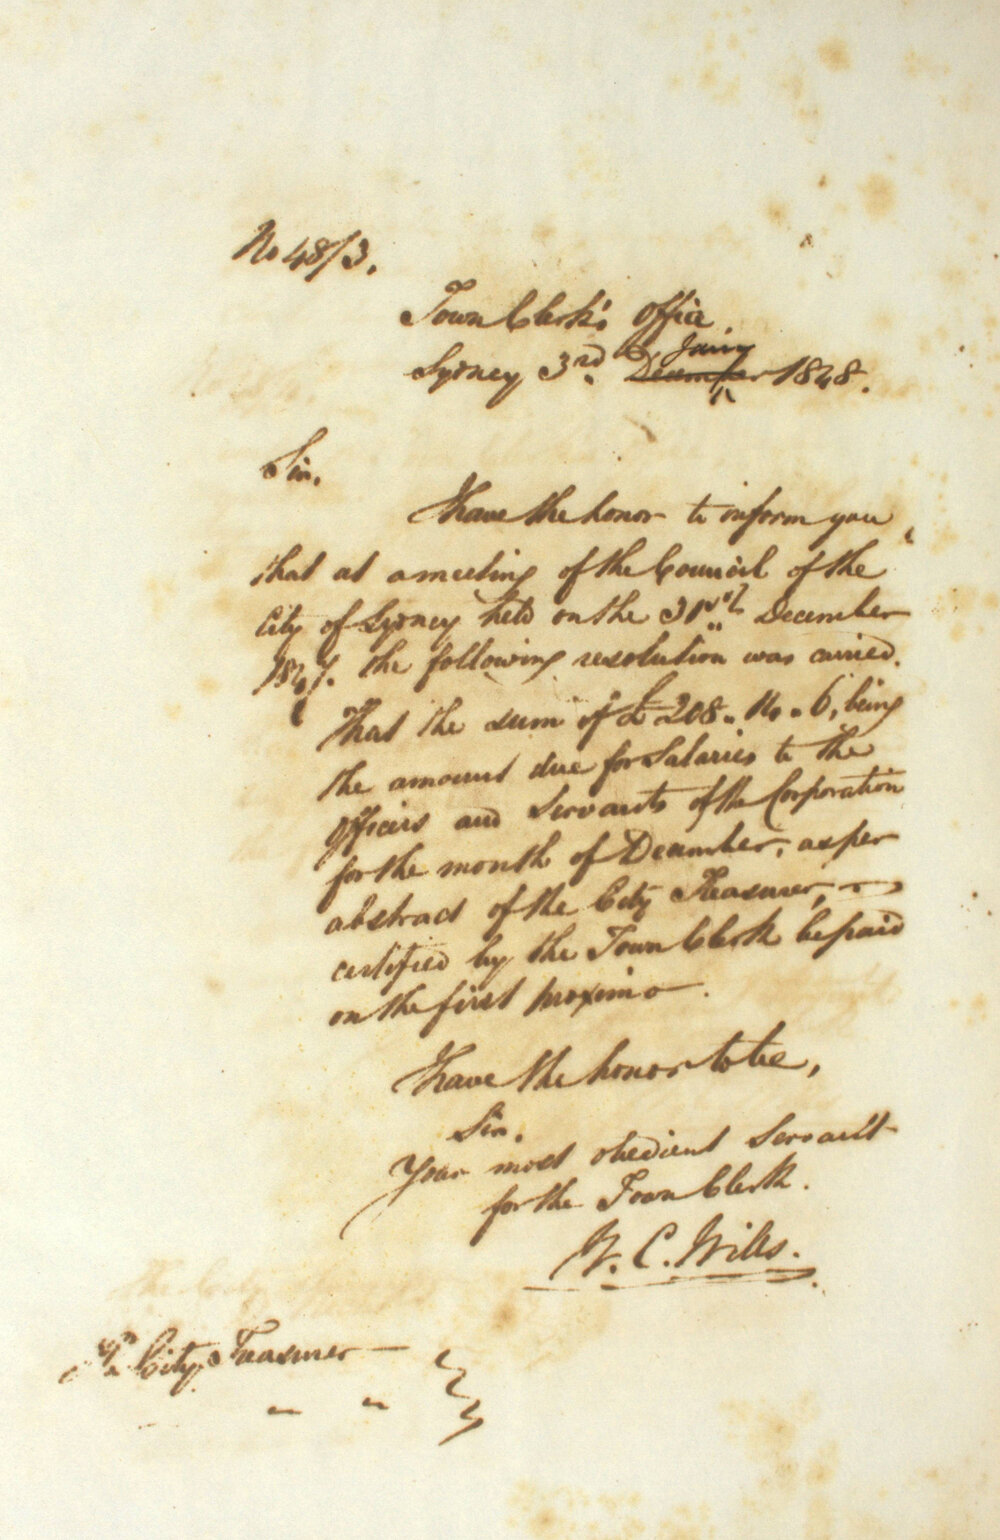 No 48/3.
Town Clerk's Office
Sydney 3rd. December Jany 1848.
Sir,
I have the honor to inform you
that at a meeting of the Council of the
City of Sydney held on the 31st December
1847. the following resolution was carried.
That the sum of £208. 16. 6, being
the amount due for Salaries to the
Officers and Servants of the Corporation
for the month of December, as per
abstract of the City Treasurer,
certified by the Town Clerk be paid
on the first proximo.
I have the honor to be,
Sir.
Your most obedient Servant
for the Town Clerk.
W. C. Wills.
City Treasurer